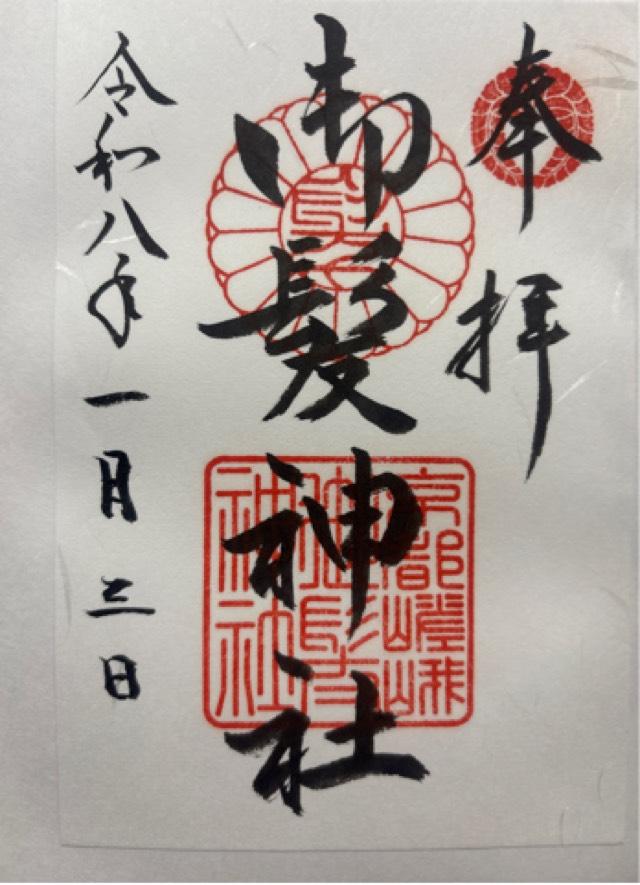 奉拝
御髪神社
京都嵯峨
小倉山
御髪
神社
令和八年一月三日